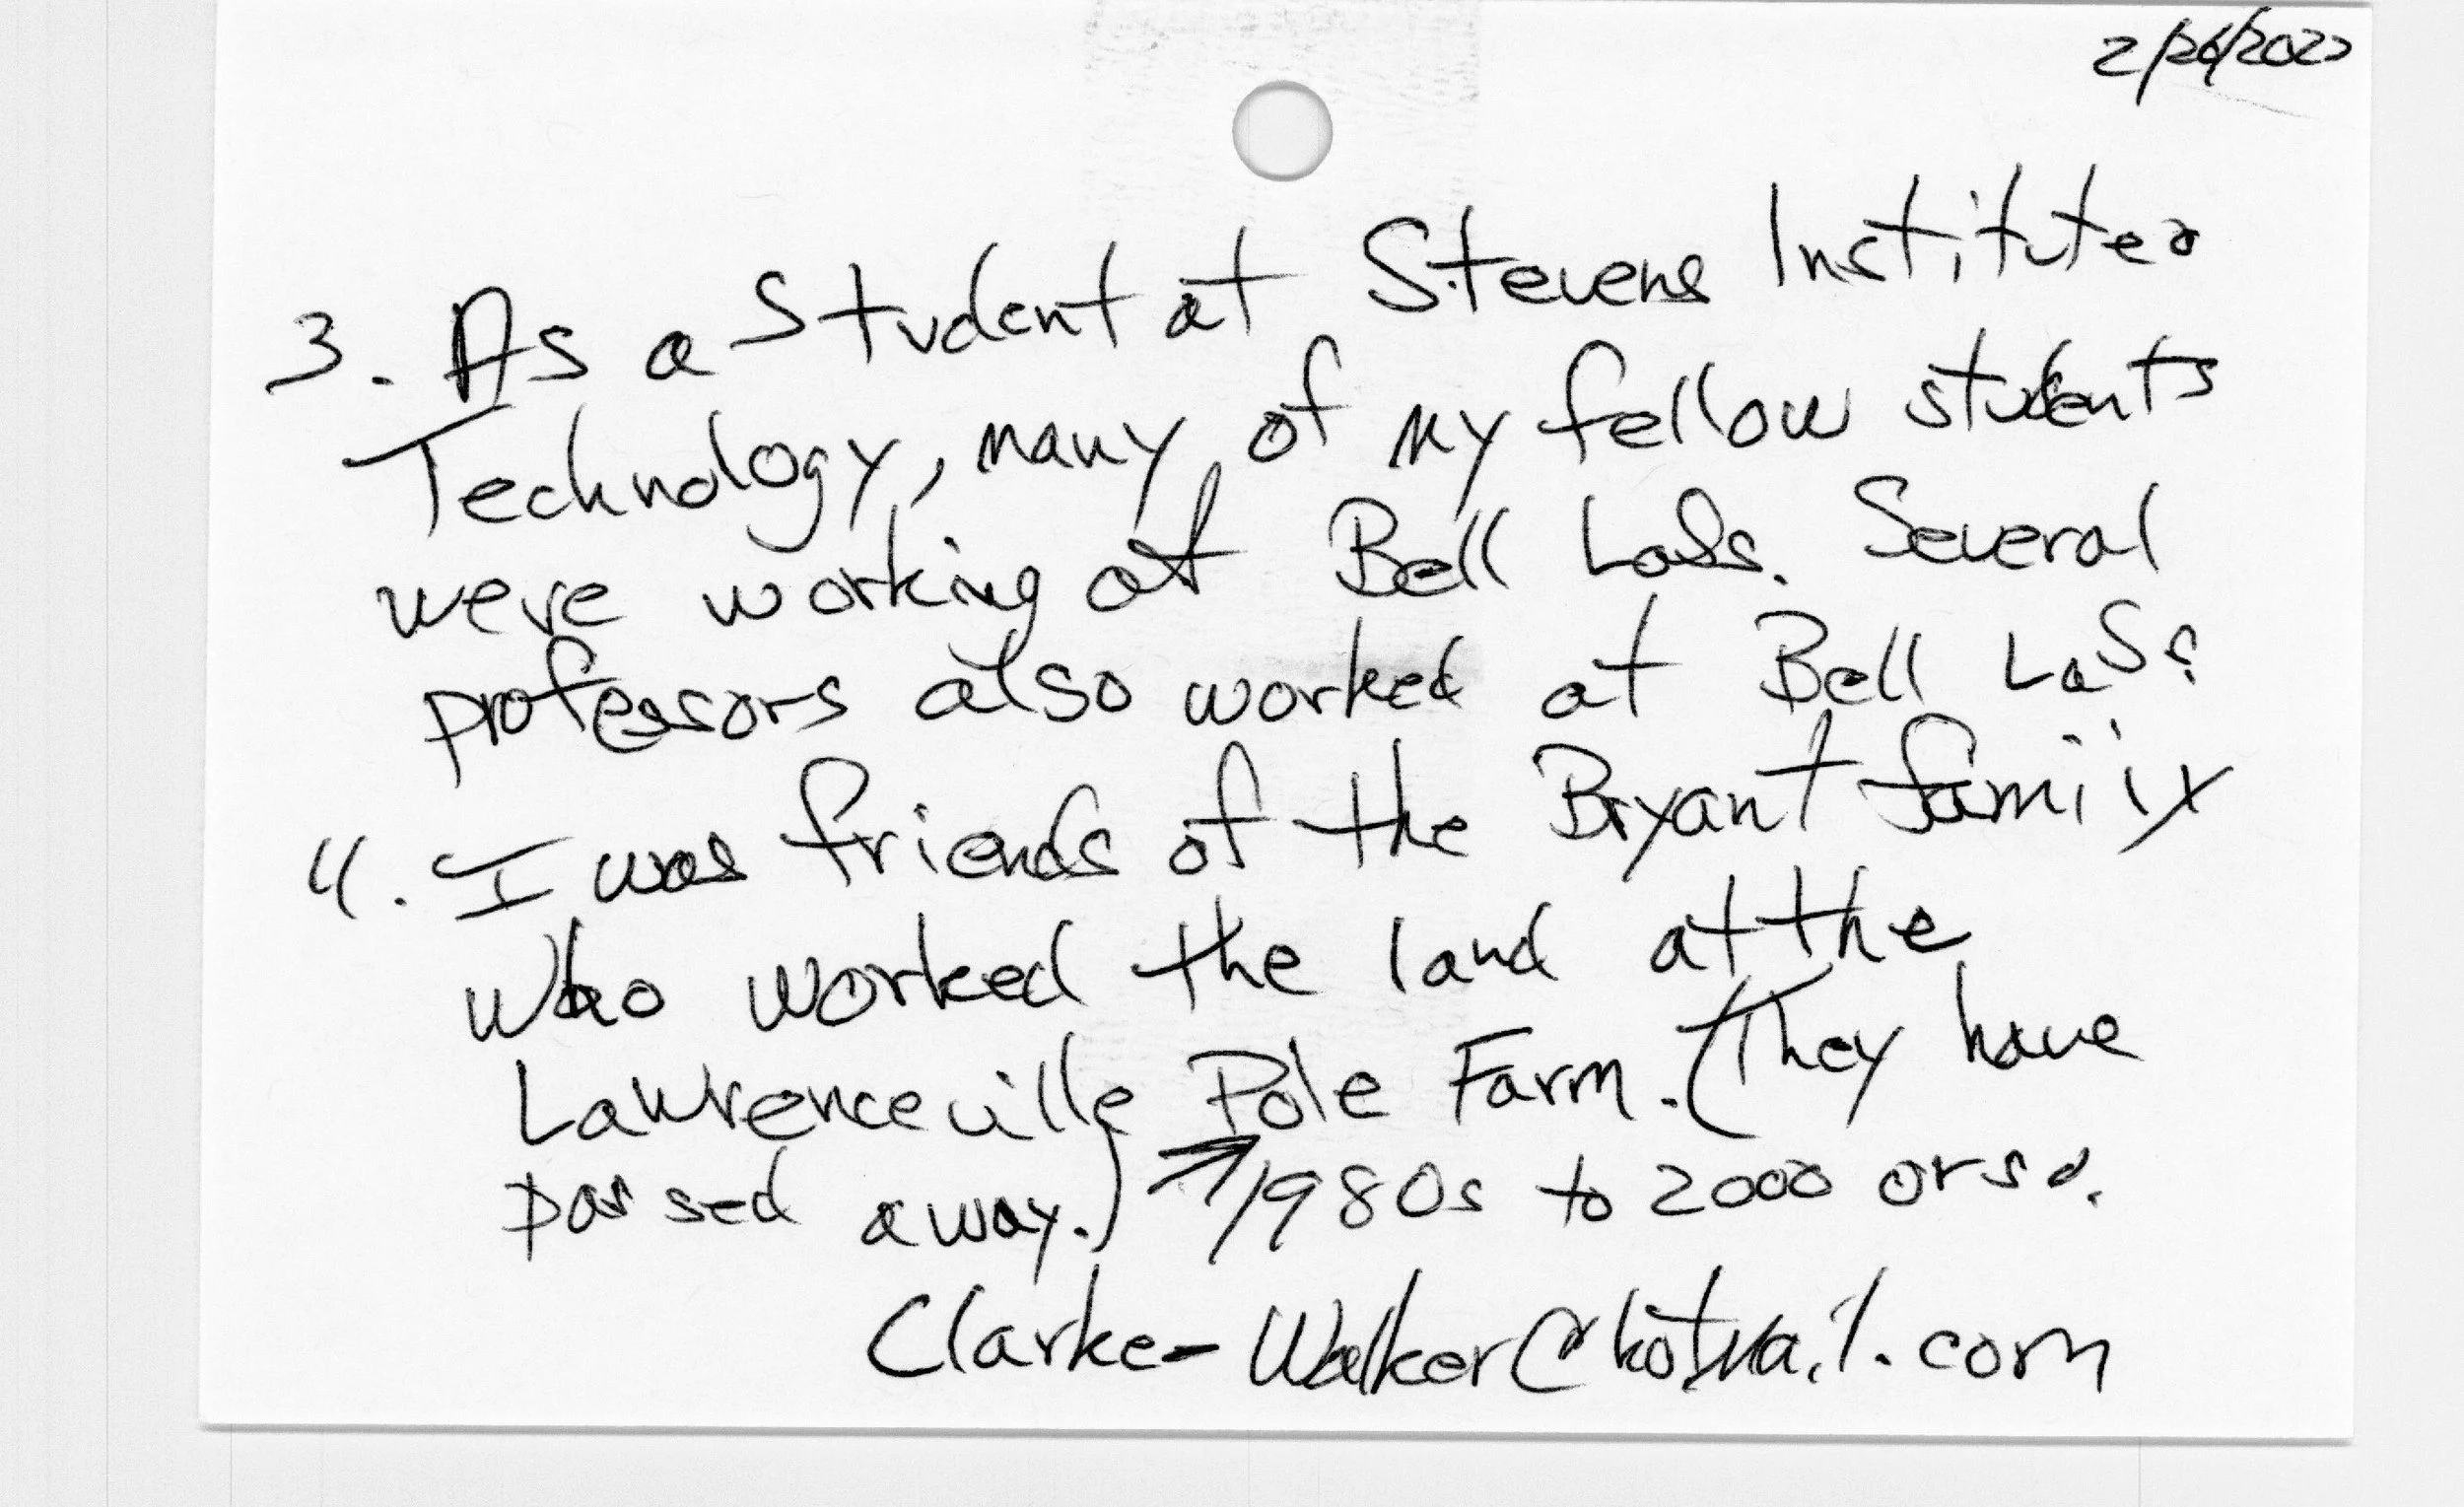 2/26/2022
3. As a Student at Stevens Institute
Technology, many of my fellow students
were working at Bell Labs. Several
professors also worked at Bell Labs.
4. I was friends of the Bryant family
who worked the land at the
Lawrenceville Pole Farm. (They have
passed away.) 1980s to 2000 or so.
Clarke-Walker@hotmail.com